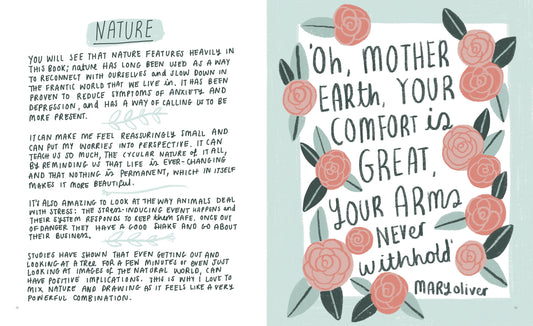 NATURE
YOU WILL SEE THAT NATURE FEATURES HEAVILY IN
THIS BOOK; NATURE HAS LONG BEEN USED AS A WAY
TO RECONNECT WITH OURSELVES AND SLOW DOWN IN
THE FRANTIC WORLD THAT WE LIVE IN. IT HAS BEEN
PROVEN TO REDUCE SYMPTOMS OF ANXIETY AND
DEPRESSION, AND HAS A WAY OF CALLING US TO BE
MORE PRESENT.
IT CAN MAKE ME FEEL REASSURINGLY SMALL AND
CAN PUT MY WORRIES INTO PERSPECTIVE. IT CAN
TEACH US SO MUCH, THE CYCULAR NATURE OF IT ALL,
BY REMINDING US THAT LIFE IS EVER-CHANGING
AND THAT NOTHING IS PERMANENT, WHICH IN ITSELF
MAKES IT MORE BEAUTIFUL.
IT'S ALSO AMAZING TO LOOK AT THE WAY ANIMALS DEAL
WITH STRESS: THE STRESS-INDUCING EVENT HAPPENS AND
THEIR SYSTEM RESPONDS TO KEEP THEM SAFE. ONCE OUT
OF DANGER THEY HAVE A GOOD SHAKE AND GO ABOUT
THEIR BUSINESS.
STUDIES HAVE SHOWN THAT EVEN GETTING OUT AND
LOOKING AT A TREE FOR A FEW MINUTES OR EVEN JUST
LOOKING AT IMAGES OF THE NATURAL WORLD, CAN
HAVE POSITIVE IMPLICATIONS. THIS IS WHY I LOVE TO
MIX NATURE AND DRAWING AS IT FEELS LIKE A VERY
POWERFUL COMBINATION.
'Oh, MOTHER
EARTH, YOUR
COMFORT is
GREAT,
YOUR ARMS
NEVER
withhold'
MARY Oliver